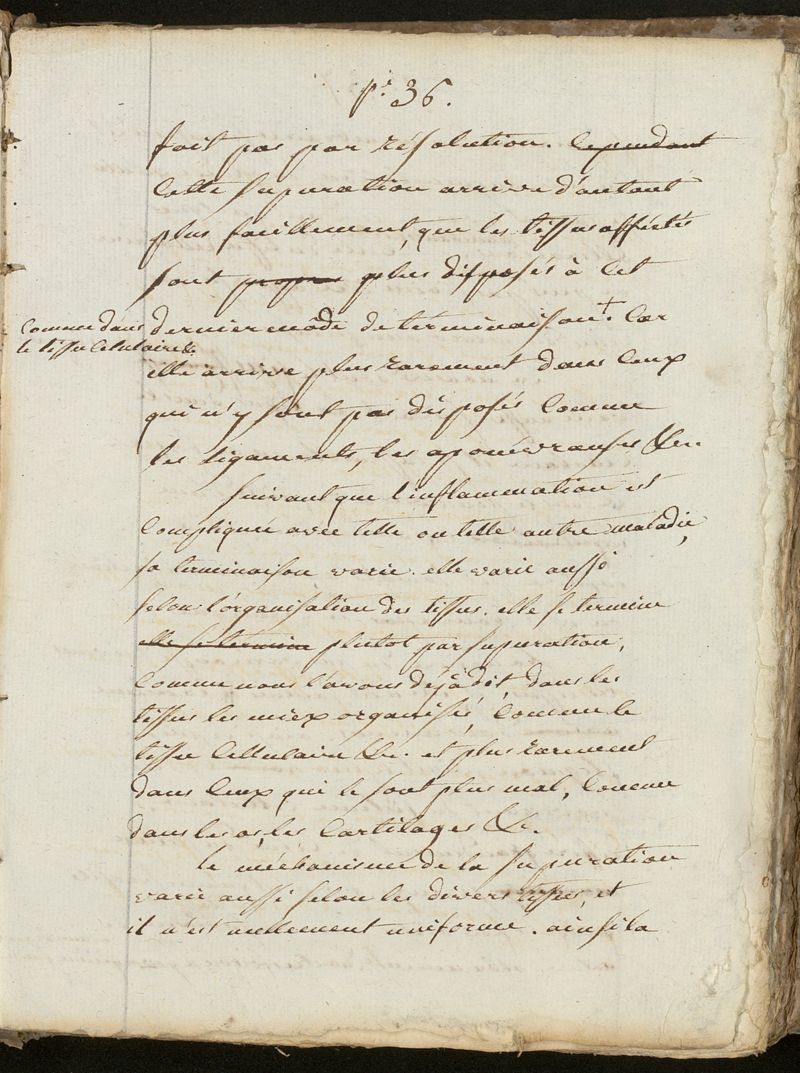 pe 36.
fait pas par résolution. Cependant
Cette supuration arrive d'autant
plus facillement, que les tissus afféctés
sont propres plus disposés à cet
dernier mode de terminaison + . Car
Comme dans
le tissu celulaire &.
elle arrive plus rarement dans ceux
qui n'y sont pas disposés comme
les ligaments, les aponévrauses &c.
suivant que l'inflammation est
Compliquée avec telle ou telle autre maladie,
sa terminaison varie. elle varie aussi
selon l'organisation des tissus. elle se termine
elle se termine plutot par supuration,
comme nous l'avons déjà dit, dans les
tissus les miex organisés, Comme le
tissu Cellulaire &c. et plus rarement
dans ceux qui le sont plus mal, Comme
dans les os, les Cartilages &c.
le méchanisme de la supuration
varie aussi selon les divers tissus, et
il n'est nullement uniforme. ainsi la